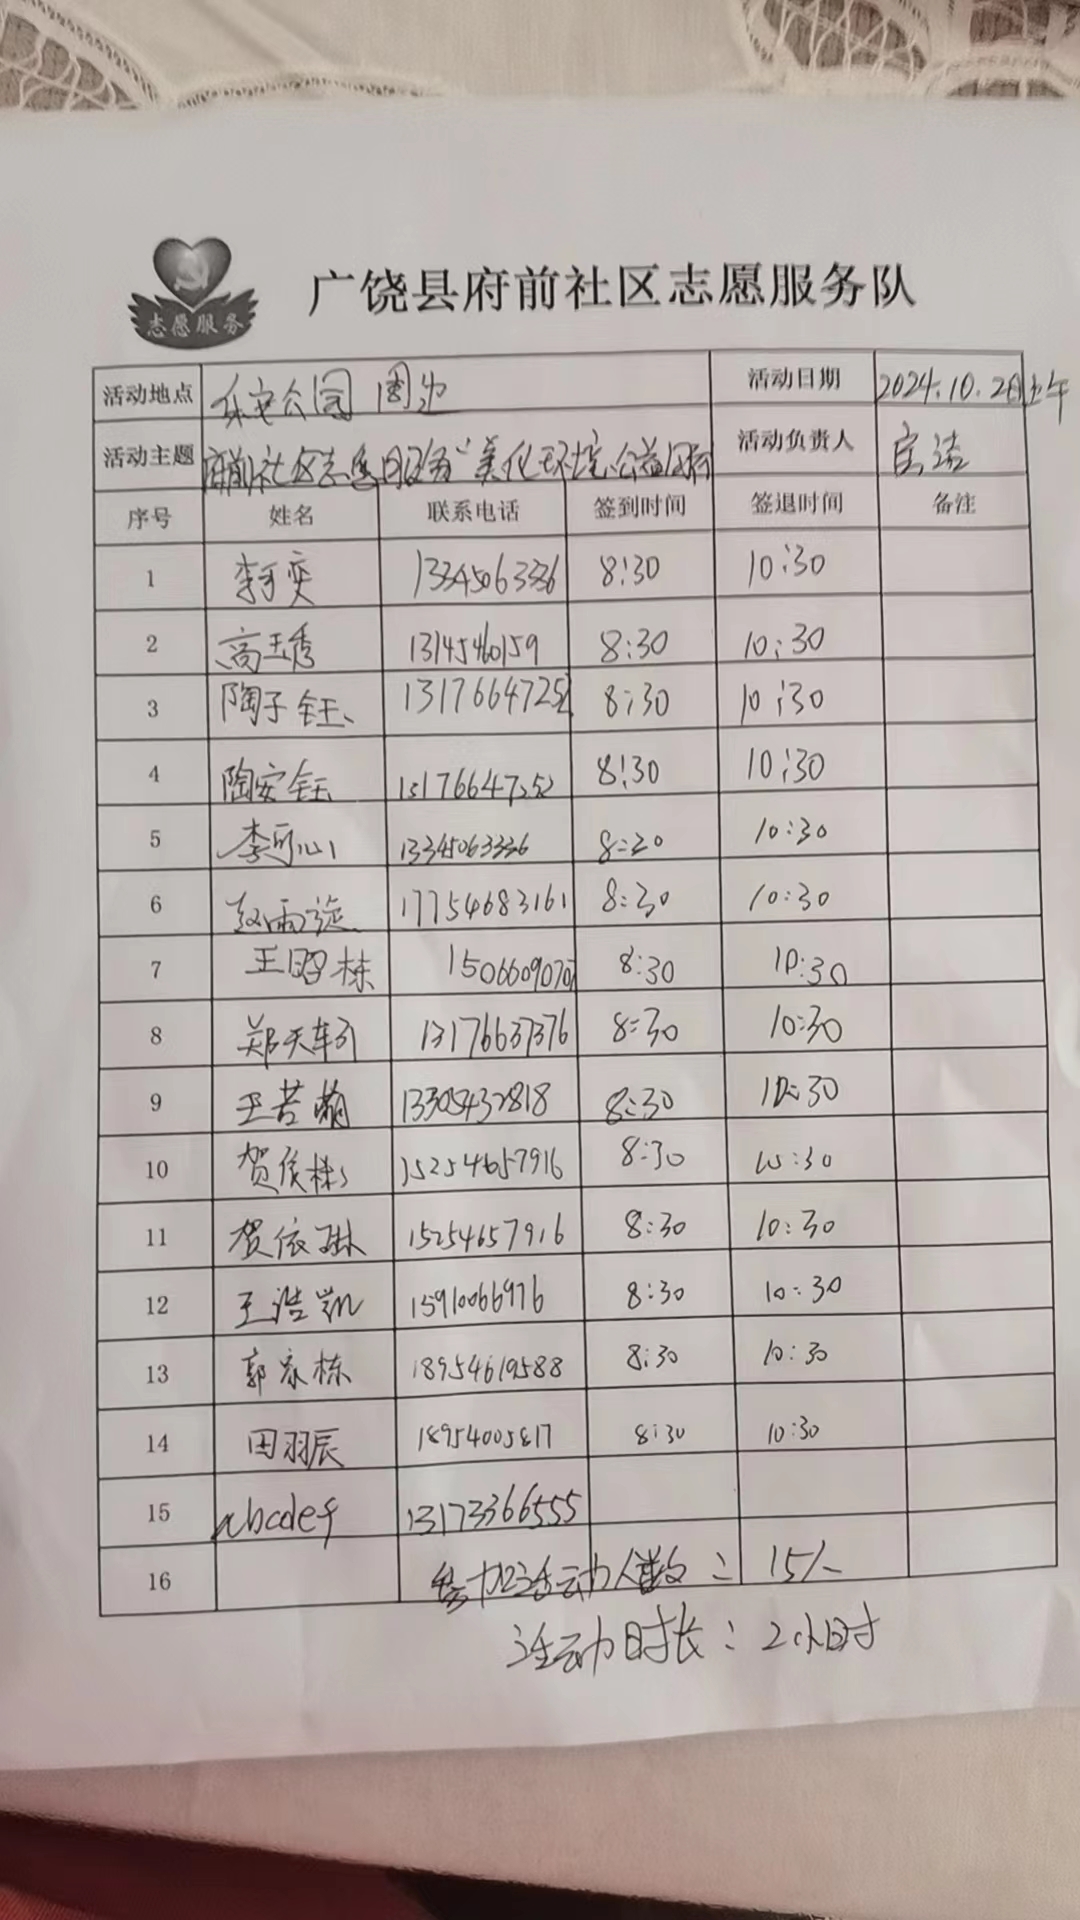 志愿服务
广饶县府前社区志愿服务队
活动地点 乐安公园 周边 活动日期 2024.10.2日上午
活动主题 府前社区志愿服务"美化环境,公益同行 活动负责人
序号 姓名 联系电话 签到时间 签退时间 备注
1 李可奕 13345063336 8:30 10:30
2 高玉秀 13145460159 8:30 10:30
3 陶子钰 1317664725 8:30 10:30
4 陶安钰 13176647252 8:30 10:30
5 李可心 13345063336 8:30 10:30
6 赵雨漩 17754683161 8:30 10:30
7 王昭栋 1506609070 8:30 10:30
8 郑天 13176637376 8:30 10:30
9 王若萌 13305432818 8:30 10:30
10 贺 15254657916 8:30 10:30
11 贺依琳 15254657916 8:30 10:30
12 王浩凯 15910066976 8:30 10:30
13 郭家栋 18954619588 8:30 10:30
14 田羽辰 18954005817 8:30 10:30
15 abcdef 13173366555
16 参加活动人数:15人
活动时长:2小时